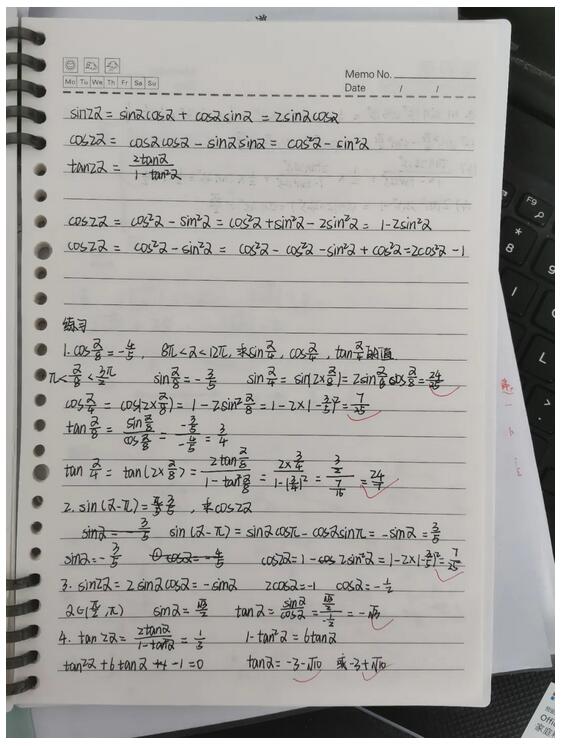 Memo No.
Mo Tu We Th Fr Sa Su
Date / /
sin2α = sinαcosα + cosαsinα = 2sinαcosα
cos2α = cosαcosα - sinαsinα = cos²α - sin²α
tan2α = 2tanα/1-tan²α
cos2α = cos²α - sin²α = cos²α + sin²α - 2sin²α = 1-2sin²α
cos2α = cos²α - sin²α = cos²α - cos²α - sin²α + cos²α = 2cos²α - 1
练习
1. cos α/8 = -4/5, 8π<α<12π, 求sin α/4, cos α/4, tan α/4的值
π< α/8 < 3π/2 sin α/8 = -3/5 sin α/4 = sin(2×α/8) = 2sin α/8 cos α/8 = 24/25
cos α/4 = cos(2×α/8) = 1-2sin² α/8 = 1-2×(-3/5)² = 7/25
tan α/8 = sin α/8 / cos α/8 = -3/5 / -4/5 = 3/4
tan α/4 = tan(2×α/8) = 2tan α/8 / 1-tan² α/8 = 2×3/4 / 1-(3/4)² = 3/2 / 7/16 = 24/7
2. sin(α-π) = 3/5, 求cos2α
sinα = -3/5 sin(α-π) = sinαcosπ - cosαsinπ = -sinα = 3/5
sinα = -3/5 ① cosα = -4/5 cos2α = 1- cos 2sin²α = 1-2×(-3/5)² = 7/25
3. sin2α = 2sinαcosα = -sinα 2cosα = -1 cosα = -1/2
α∈(π/2, π) sinα = √3/2 tanα = sinα/cosα = √3/2 / -1/2 = -√3
4. tan2α = 2tanα/1-tan²α = 1/3 1-tan²α = 6tanα
tan²α + 6tanα -1=0 tanα = -3-√10 或 -3+√10
F9
8